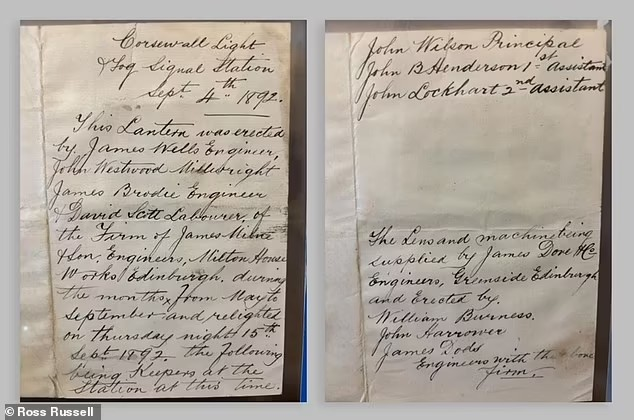 Corsewall Light
& Fog Signal Station
Sept 4th 1892.
This Lantern was erected
by James Wells Engineer,
John Westwood Millwright
James Brodie Engineer
& David Scott Labourer, of
the Firm of James Milne
& Son, Engineers, Milton House
Works Edinburgh, during
the months, from May to
September and relighted
on thursday night 15th
Sept 1892. the following
being Keepers at the
Station at this time.
John Wilson Principal
John B Henderson 1st assistant
John Lockhart 2nd assistant
The Lens and machine being
supplied by James Dove & Co
Engineers, Greenside Edinburgh
and Erected by.
William Burness.
John Harrower
James Dodds
Engineers with the above
firm.
© Ross Russell